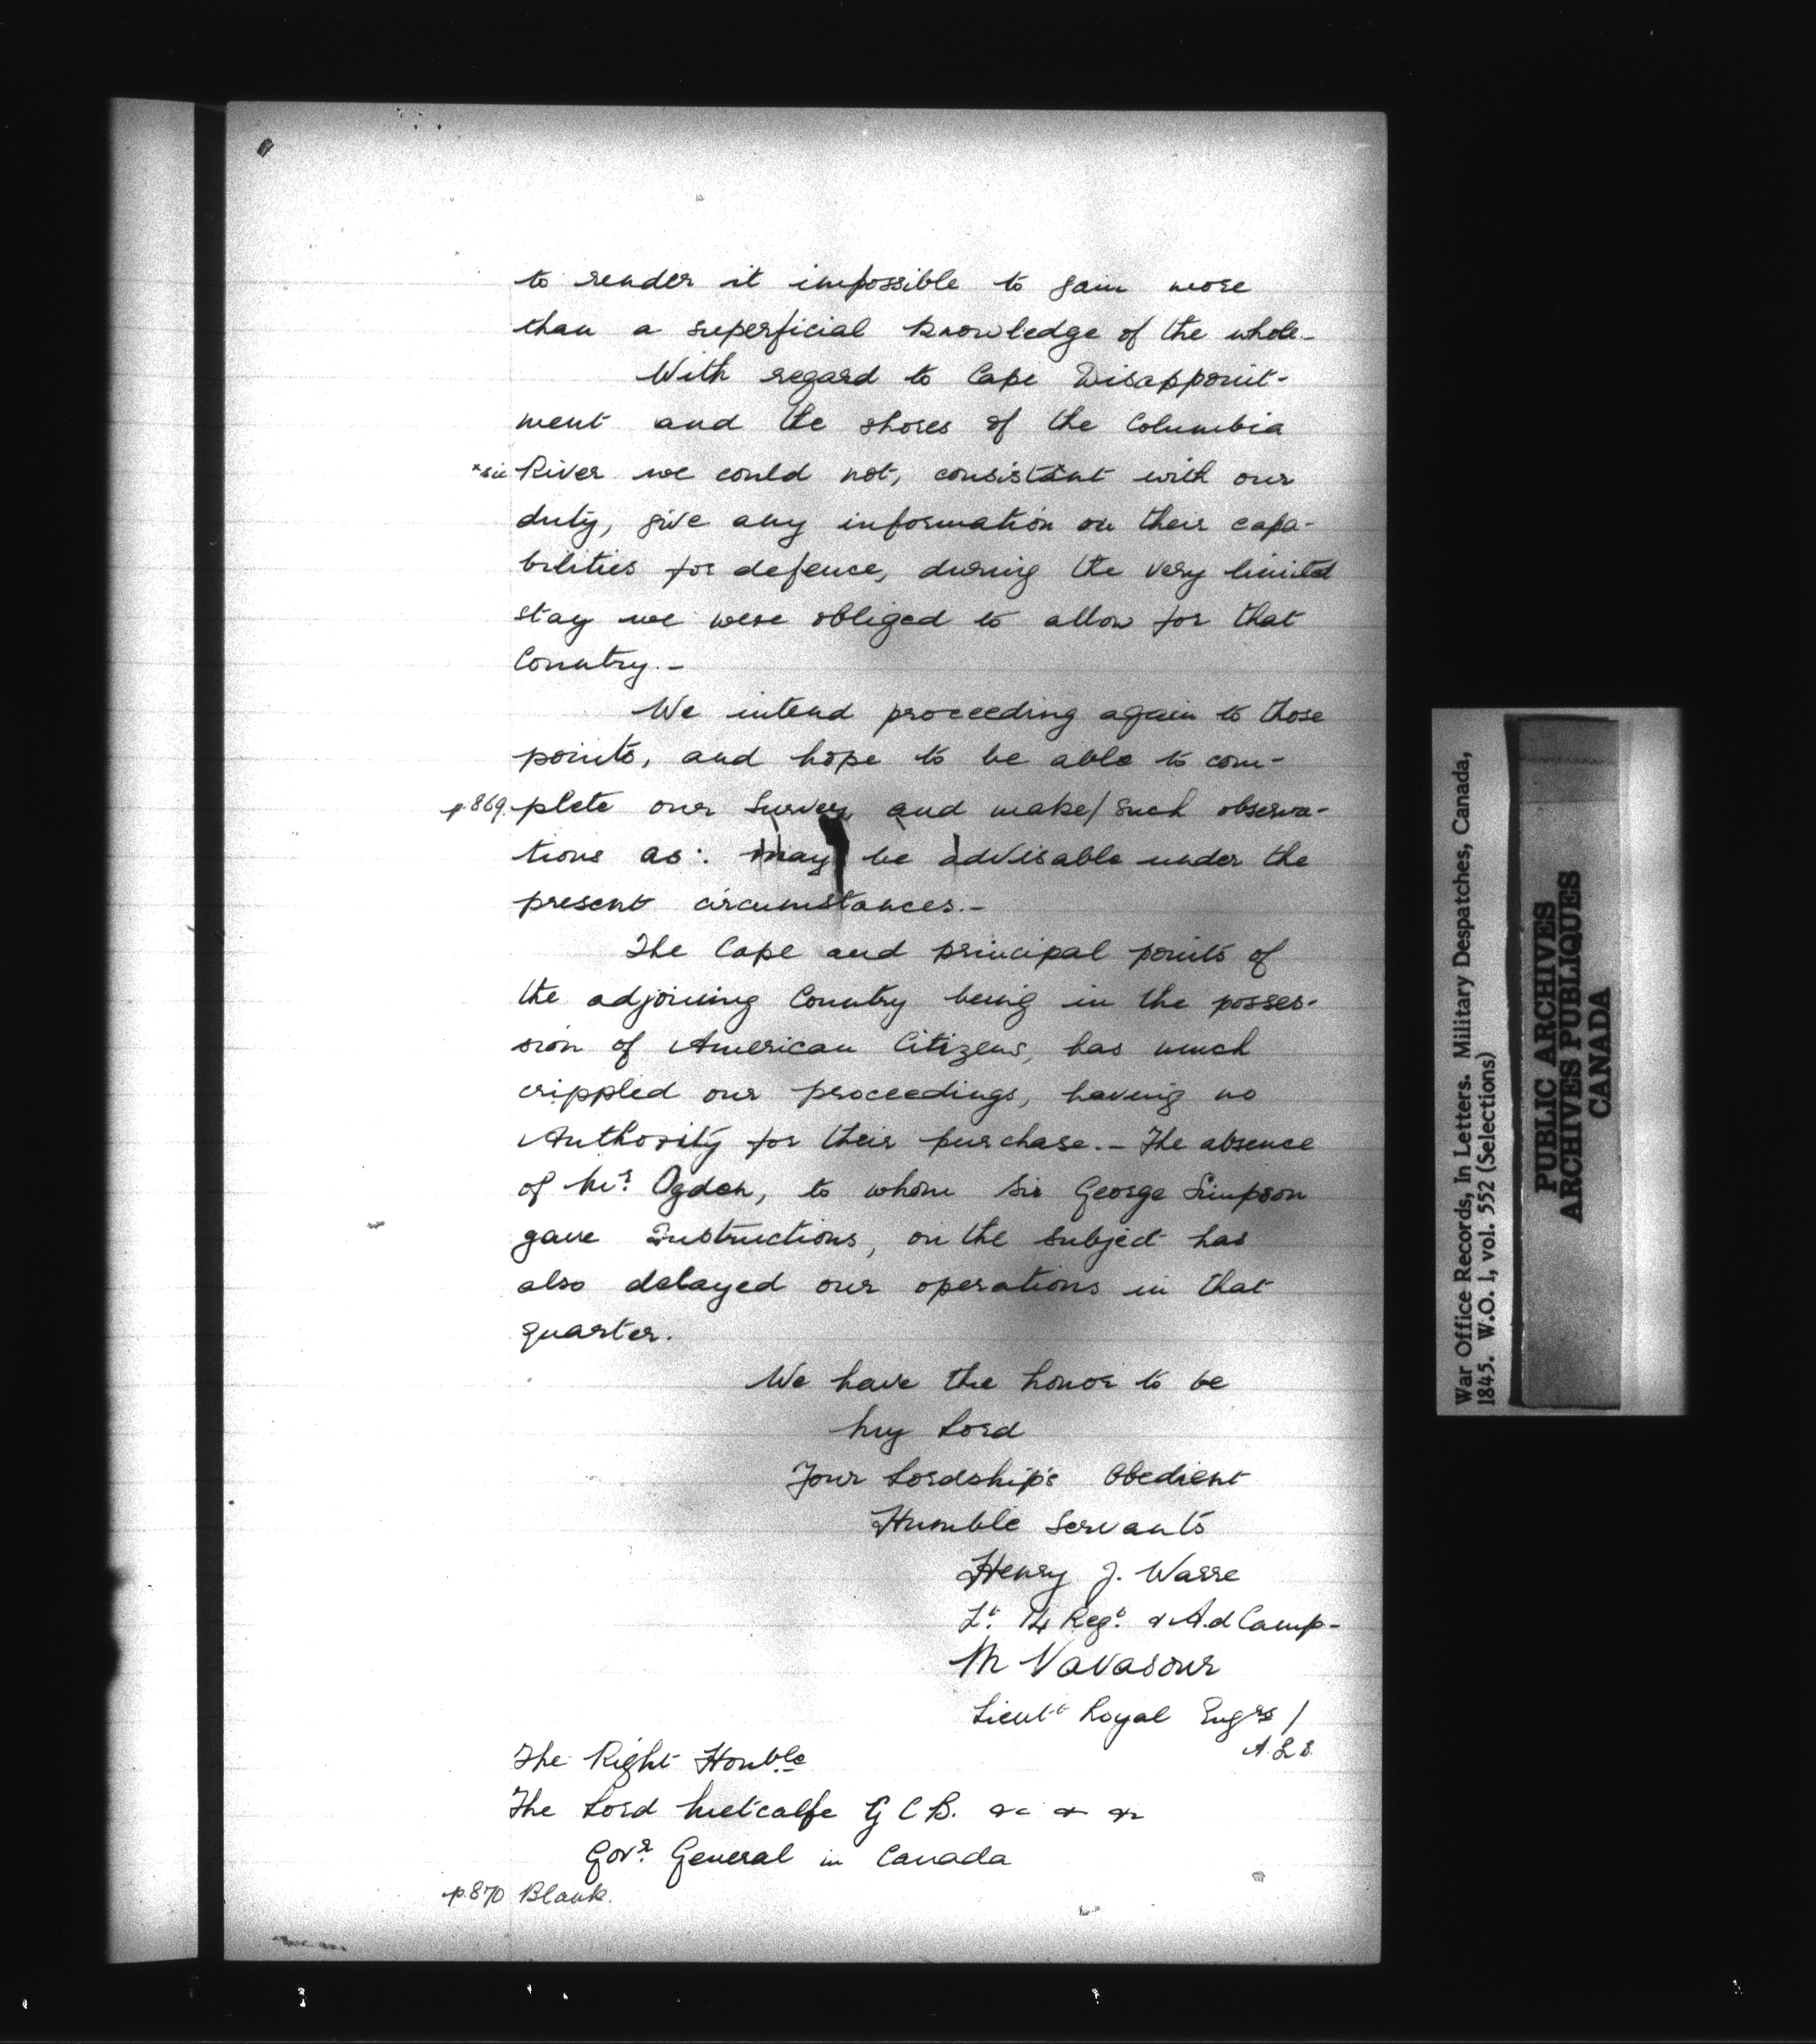 to render it impossible to gain more
than a superficial knowledge of the whole.-
With regard to Cape Disappoint-
ment and the shores of the Columbia
*sic River we could not, consistant with our
duty, give any information on their capa-
bilities for defence, during the very limited
stay we were obliged to allow for that
Country.-
We intend proceeding again to those
points, and hope to be able to com-
p.869. plete our Survey and make/such observa-
tions as: may be advisable under the
present circumstances.-
The Cape and principal points of
the adjoining Country being in the posses-
sion of American Citizens, has much
crippled our proceedings, having no
Authority for their purchase.- The absence
of Mr. Ogden, to whom Sir George Simpson
gave Instructions, on the subject has
also delayed our operations in that
quarter.
We have the honor to be
My Lord
Your Lordship's Obedient
Humble Servants
Henry J. Warre
Lt. 14 Regt. & A.d Camp-
M Vavasour
Lieutt Royal Engrs /
A.L.S.
The Right Honble
The Lord Metcalfe G C B. &c & &c
Govr. General in Canada
p.870 Blank.
War Office Records, In Letters. Military Despatches, Canada,
1845. W.O. 1, vol. 552 (Selections)
PUBLIC ARCHIVES
ARCHIVES PUBLIQUES
CANADA